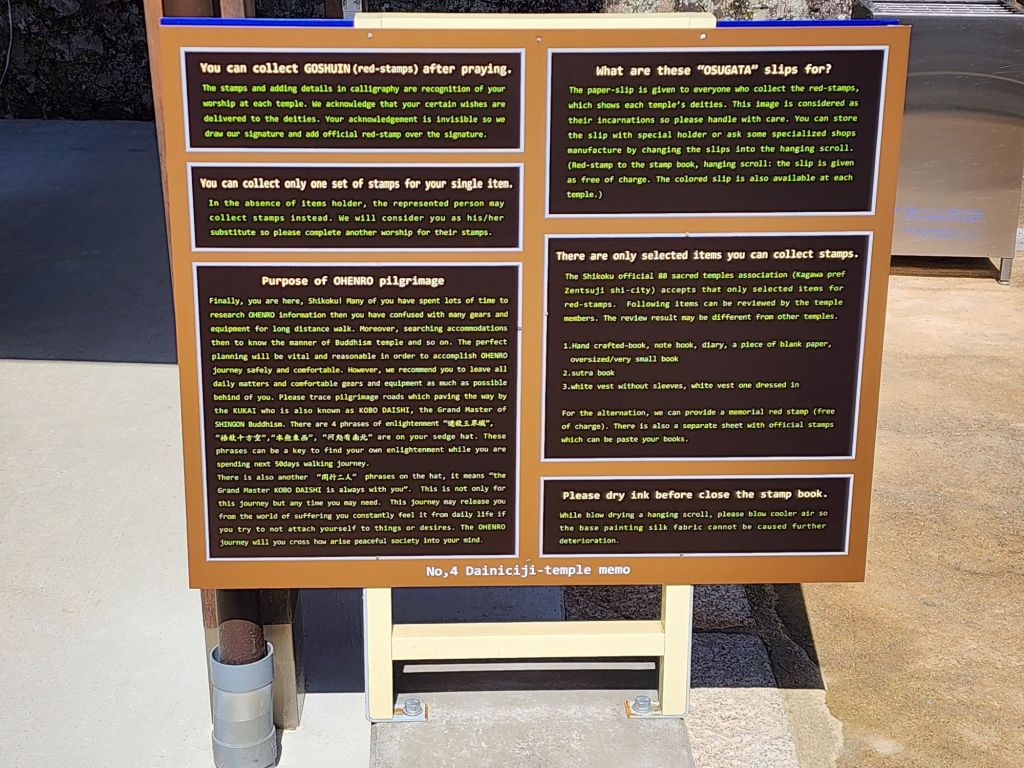 You can collect GOSHUIN(red-stamps) after praying.
The stamps and adding details in calligraphy are recognition of your
worship at each temple. We acknowledge that your certain wishes are
delivered to the deities. Your acknowledgement is invisible so we
draw our signature and add official red-stamp over the signature.
You can collect only one set of stamps for your single item.
In the absence of items holder, the represented person may
collect stamps instead. We will consider you as his/her
substitute so please complete another worship for their stamps.
Purpose of OHENRO pilgrimage
Finally, you are here, Shikoku! Many of you have spent lots of time to
research OHENRO information then you have confused with many gears and
equipment for long distance walk. Moreover, searching accommodations
then to know the manner of Buddhism temple and so on. The perfect
planning will be vital and reasonable in order to accomplish OHENRO
journey safely and comfortable. However, we recommend you to leave all
daily matters and comfortable gears and equipment as much as possible
behind of you. Please trace pilgrimage roads which paving the way by
the KUKAI who is also known as KOBO DAISHI, the Grand Master of
SHINGON Buddhism. There are 4 phrases of enlightenment "迷故三界城",
"悟故十方空","本無東西", "何処有南北" are on your sedge hat. These
phrases can be a key to find your own enlightenment while you are
spending next 50days walking journey.
There is also another "同行二人" phrases on the hat, it means "the
Grand Master KOBO DAISHI is always with you". This is not only for
this journey but any time you may need. This journey may release you
from the world of suffering you constantly feel it from daily life if
you try to not attach yourself to things or desires. The OHENRO
journey will you cross how arise peaceful society into your mind.
What are these "OSUGATA" slips for?
The paper-slip is given to everyone who collect the red-stamps,
which shows each temple's deities. This image is considered as
their incarnations so please handle with care. You can store
the slip with special holder or ask some specialized shops
manufacture by changing the slips into the hanging scroll.
(Red-stamp to the stamp book, hanging scroll: the slip is given
as free of charge. The colored slip is also available at each
temple.)
There are only selected items you can collect stamps.
The Shikoku official 88 sacred temples association (Kagawa pref
Zentsuji shi-city) accepts that only selected items for
red-stamps. Following items can be reviewed by the temple
members. The review result may be different from other temples.
1.Hand crafted-book, note book, diary, a piece of blank paper,
oversized/very small book
2.sutra book
3.white vest without sleeves, white vest one dressed in
For the alternation, we can provide a memorial red stamp (free
of charge). There is also a separate sheet with official stamps
which can be paste your books.
Please dry ink before close the stamp book.
While blow drying a hanging scroll, please blow cooler air so
the base painting silk fabric cannot be caused further
deterioration.
No,4 Dainiciji-temple memo